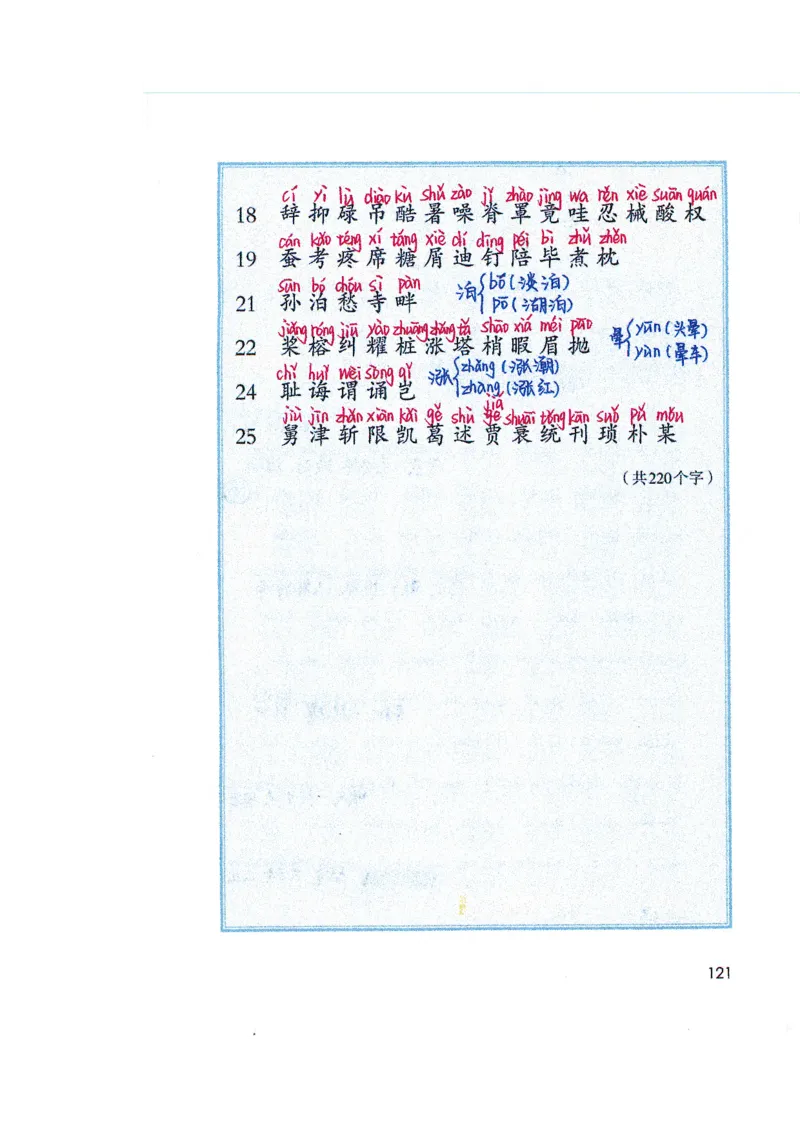 cí yì lù diào kù shǔ zào jǐ zhào jìng wa rěn xiè suān quán
18 辞 抑 碌 吊 酷 暑 噪 脊 罩 竟 哇 忍 械 酸 权
cán kǎo téng xí táng xiè dí dīng péi bì zhǔ zhěn
19 蚕 考 疼 席 糖 屑 迪 钉 陪 毕 煮 枕
sūn bó chóu sì pàn
21 孙 泊 愁 寺 畔
泊 bó(淡泊)
pō(湖泊)
jiǎng róng jiū yào zhuāng zhǎng tǎ shāo xiá méi pāo
22 桨 榕 纠 耀 桩 涨 塔 梢 暇 眉 抛
晕 yūn(头晕)
yùn(晕车)
chǐ huǐ wèi sòng qǐ
24 耻 诲 谓 诵 岂
涨 zhǎng(涨潮)
zhàng(涨红)
jiù jīn zhǎn xiàn kǎi gě shù jiǎ shuāi tǒng kān suǒ pǔ mǒu
25 舅 津 斩 限 凯 葛 述 贾 衰 统 刊 琐 朴 某
(共220个字)
121